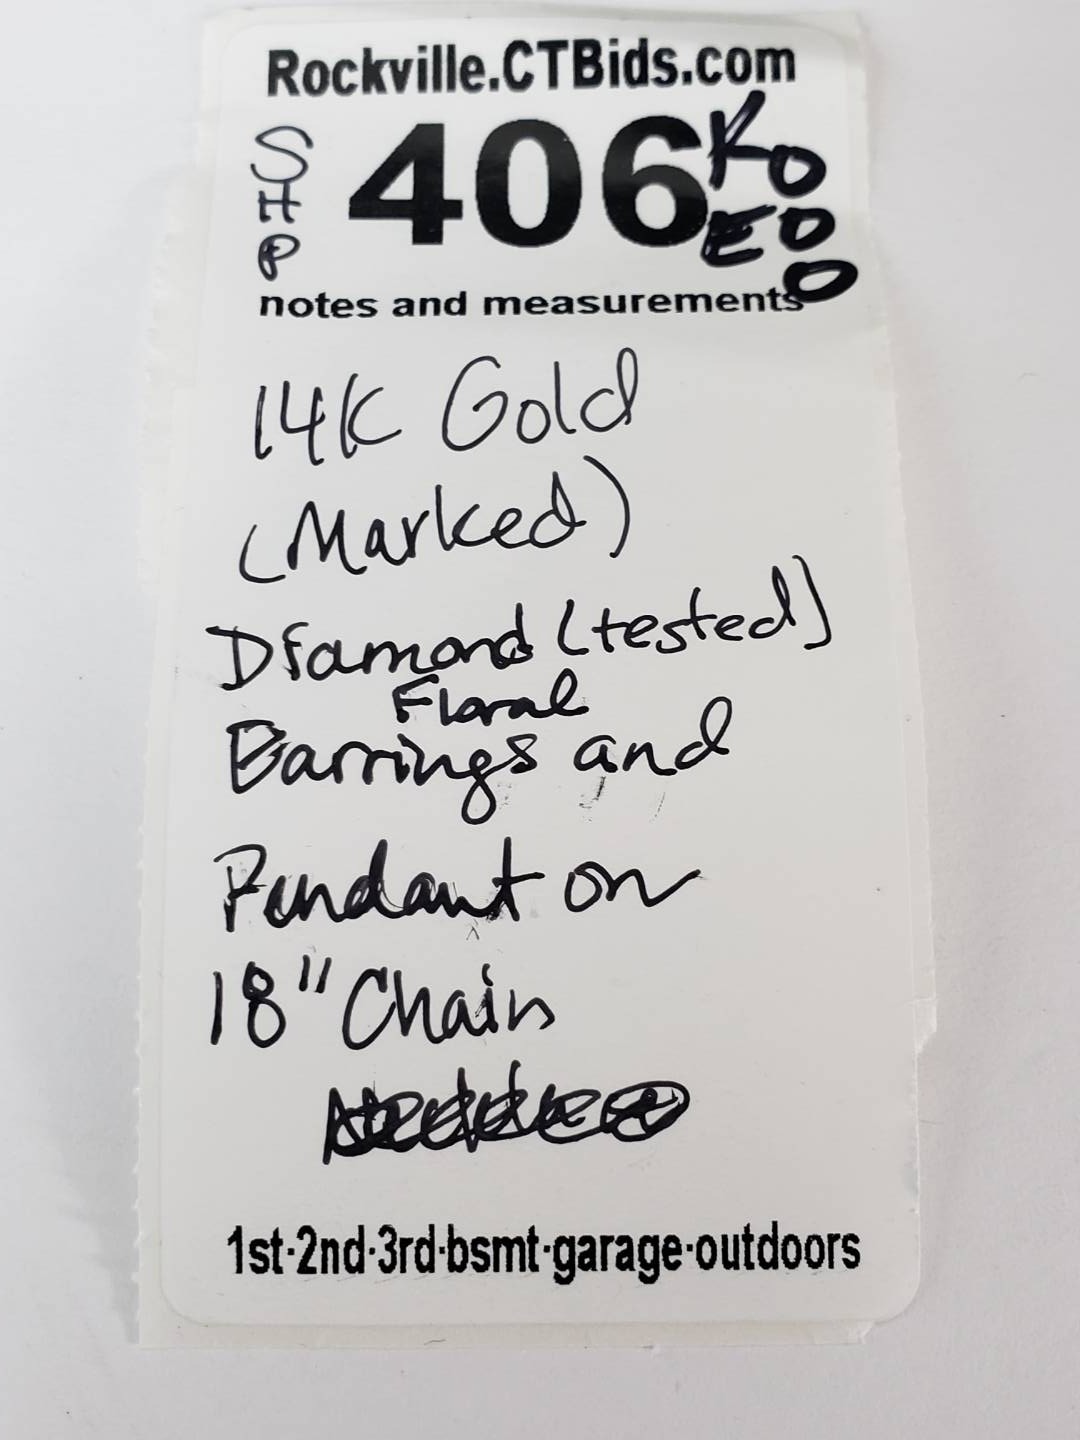 Rockville.CTBids.com
SHP
406
KO
EO
O
notes and measurements
14K Gold
(Marked)
Diamond (tested)
Floral
Earrings and
Pendant on
18" Chain
1st·2nd·3rd·bsmt·garage·outdoors